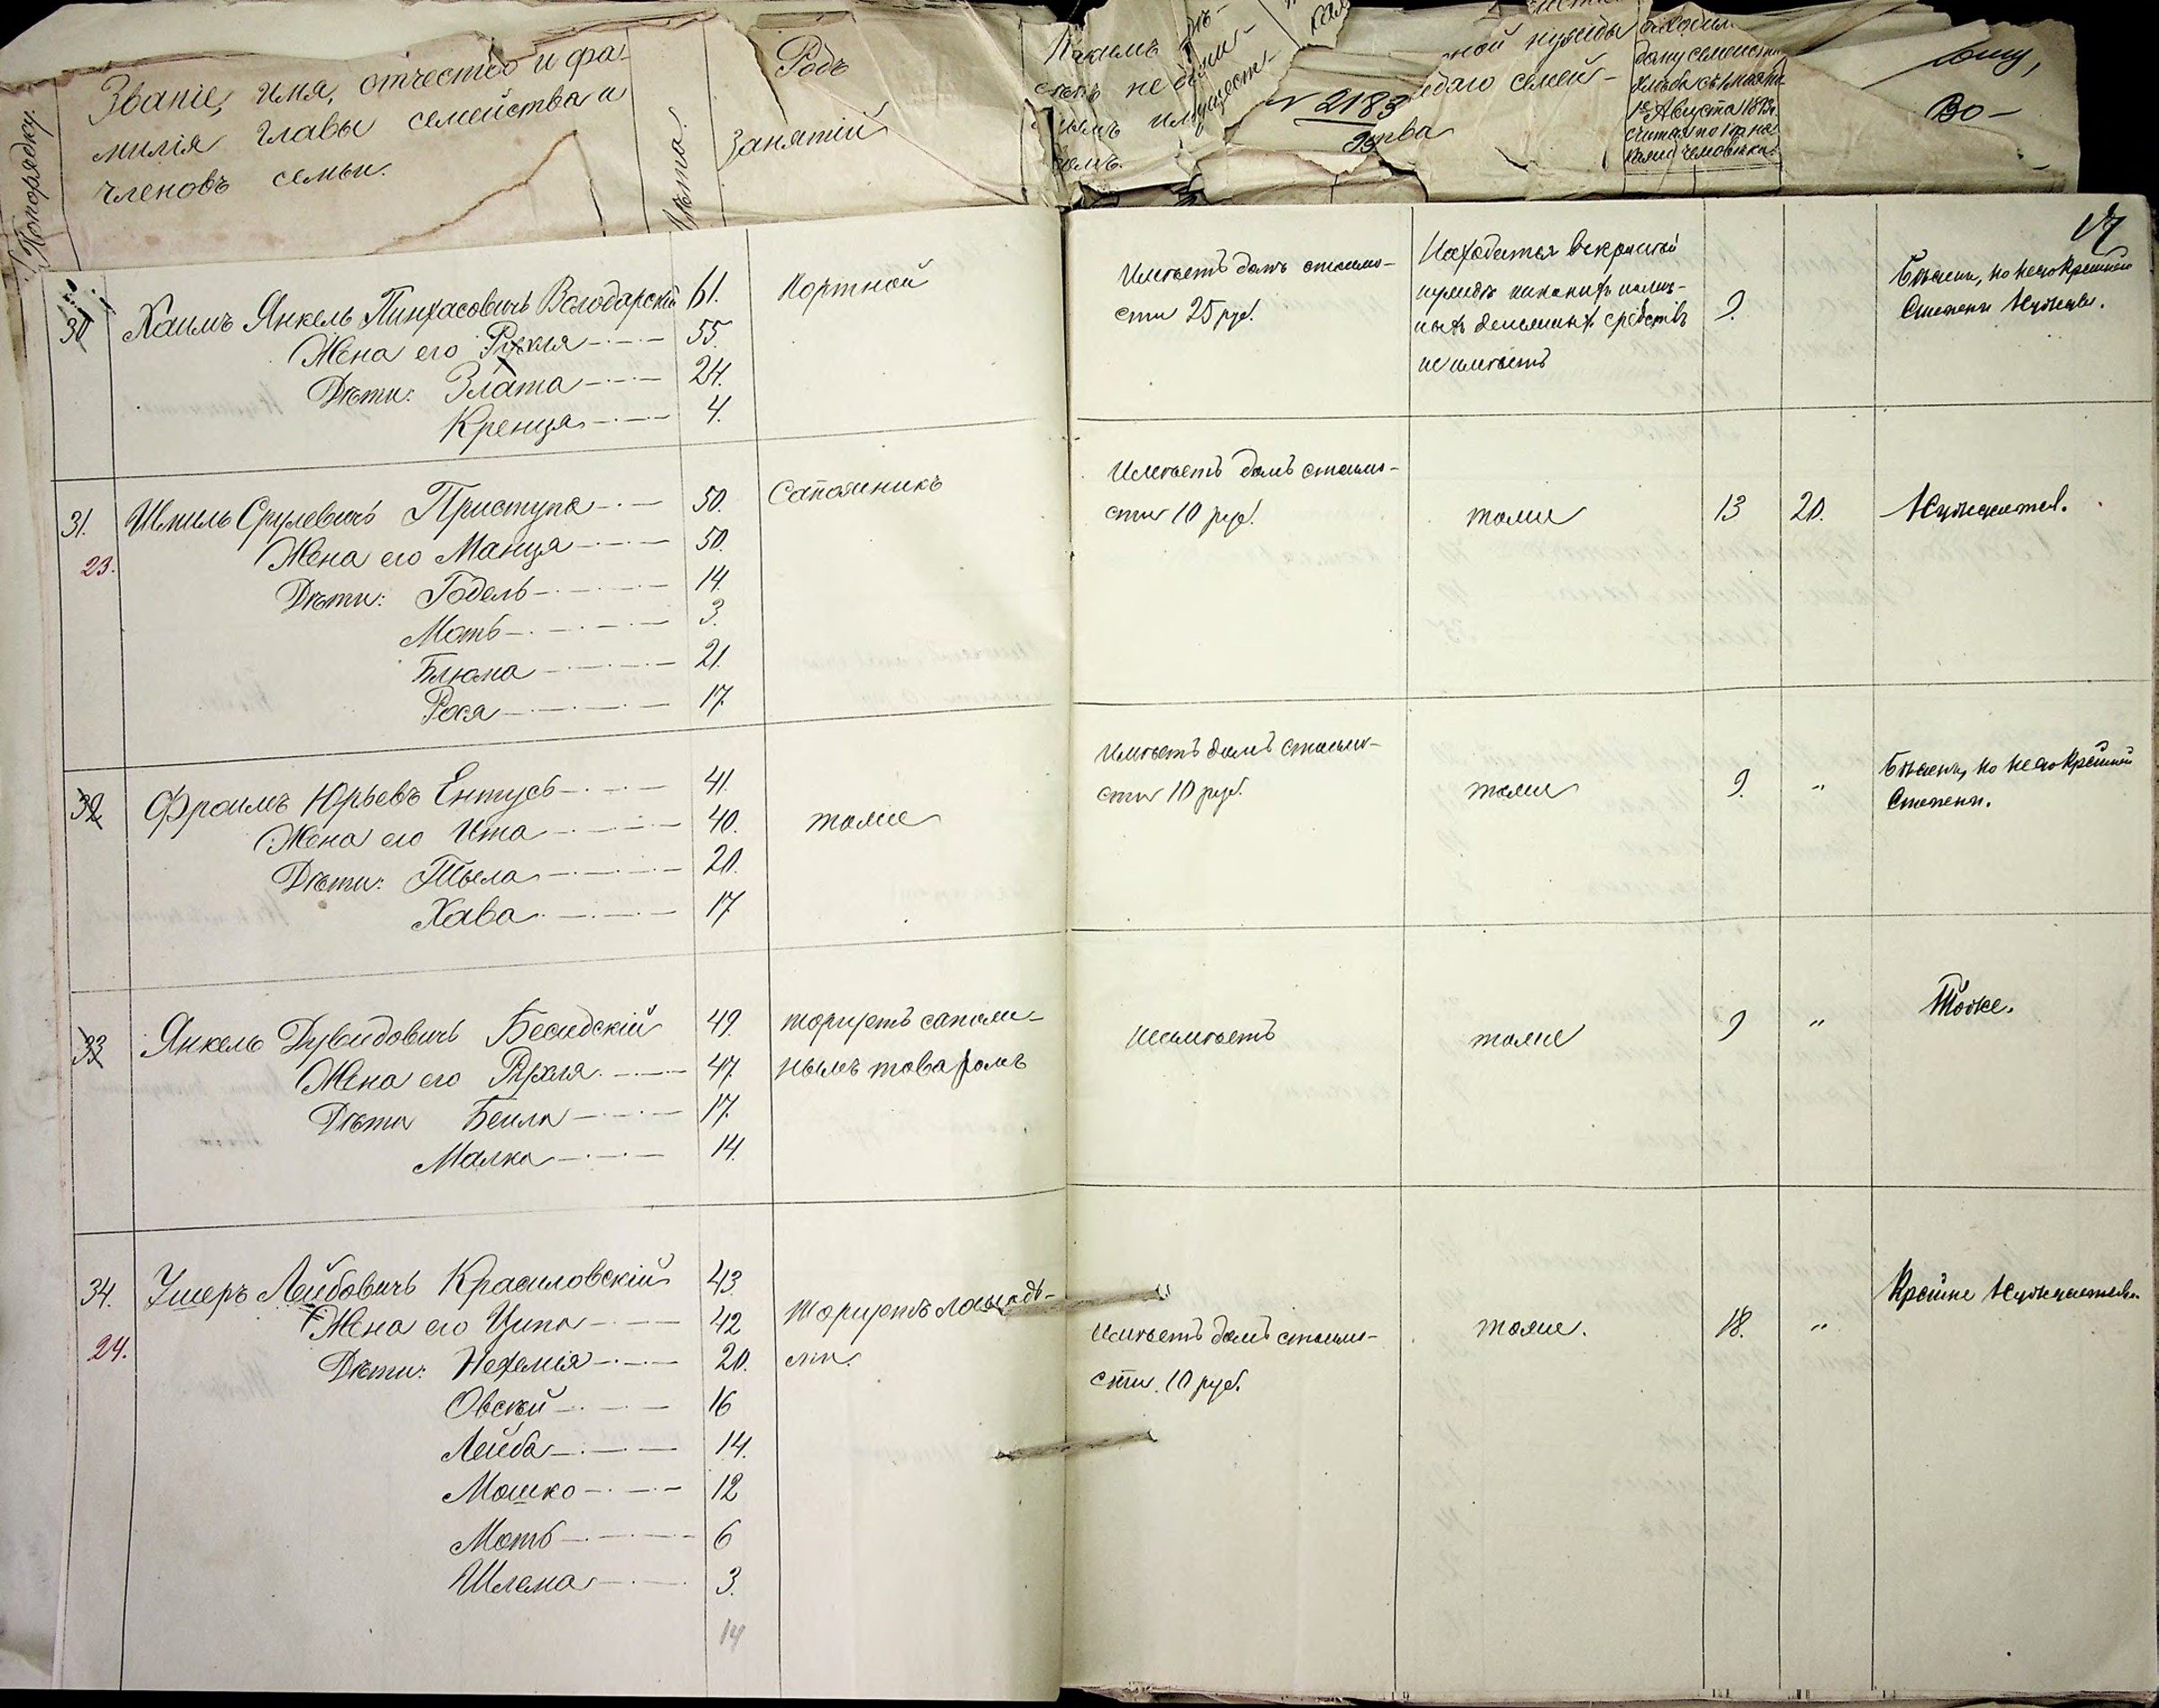 Попорядку.
Званіе, имя, отчество и фа-
милія главы семейства и
членовъ семьи.
Лѣта.
Родъ
занятій
Какимъ
не
имущест-
№ 2183
ной нужды
едаго семей-
ства
1го Августа 1893г.
считая по 1 п. на
Во-
17
30
Хаимъ Янкель Пинхасовичъ Володарскій 61.
Жена его Рухля 55.
Дѣти: Злата 24.
Кренця 4.
Портной
Имѣетъ домъ стоимо-
сти 25 руб.
Находится в крайней
нужде никакихъ налич-
ныхъ денежныхъ средствъ
не имѣетъ
9.
Бѣденъ, но не въ крайней
Степени Нуждается.
31.
23.
Шмиль Срулевичъ Приступа 50.
Жена его Манця 50.
Дѣти: Годель 14.
Моть 3.
Блюма 21.
Рося 17.
Сапожникъ
Имѣетъ домъ стоимо-
сти 10 руб.
тоже
13
20.
Нуждается.
32
Фроимъ Юрьевъ Ентусь 41.
Жена его Ита 40.
Дѣти: Тыла 20.
Хава 17
тоже
Имѣетъ домъ стоимо-
сти 10 руб.
тоже
9.
"
Бѣденъ, но не въ крайней
Степени.
33
Янкель Дувидовичъ Бесидскій 49.
Жена его Рухля 47.
Дѣти Беила 17.
Малка 14.
торгуетъ сапож-
нымъ товаромъ
Неимѣетъ
тоже
9
"
Тоже.
34.
24.
Ушеръ Лейбовичъ Красиловскій 43
Жена его Ципа 42
Дѣти: Нехемія 20.
Овсѣй 16
Лейба 14.
Мошко 12
Моть 6
Шлема 3.
14
торгуетъ лошадь-
ми.
Имѣетъ домъ стоимо-
сти 10 руб.
тоже.
18.
"
Крайне Нуждается.